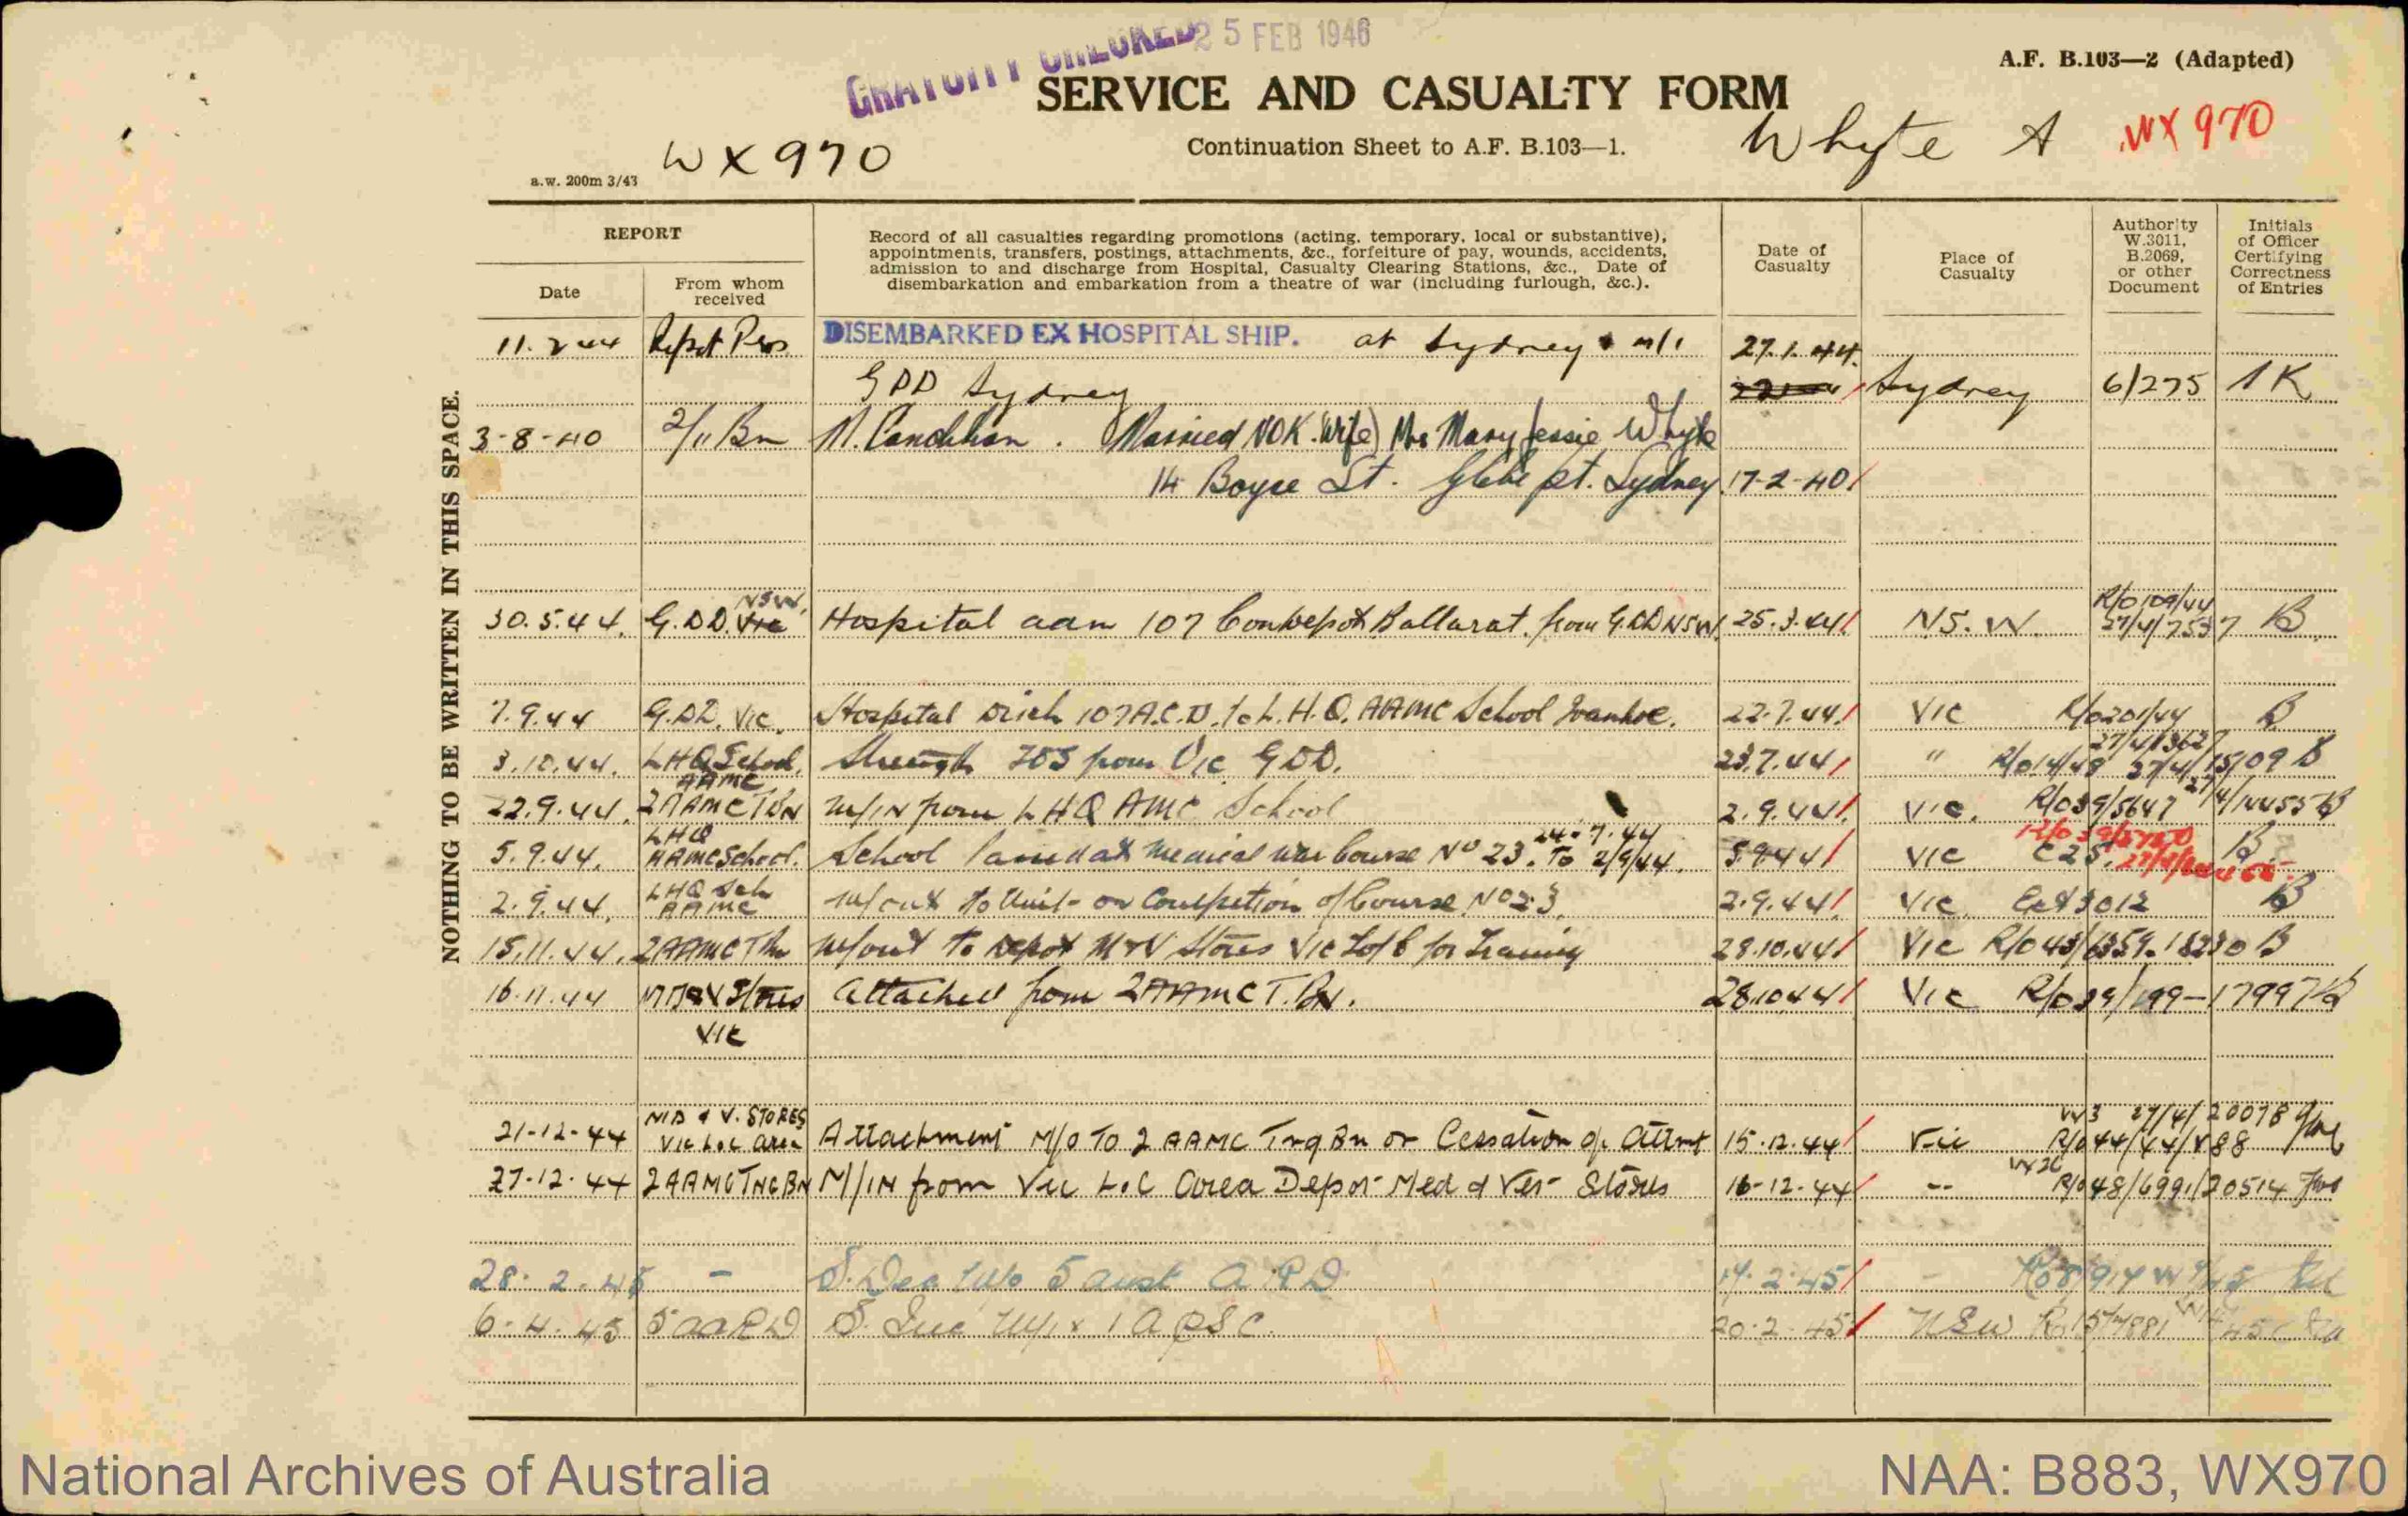 GRATUITY CHECKED 25 FEB 1946
A.F. B.103—2 (Adapted)
SERVICE AND CASUALTY FORM
Continuation Sheet to A.F. B.103—1.
Whyte A WX970
WX970
a.w. 200m 3/43
NOTHING TO BE WRITTEN IN THIS SPACE.
REPORT
Date
From whom received
Record of all casualties regarding promotions (acting, temporary, local or substantive),
appointments, transfers, postings, attachments, &c., forfeiture of pay, wounds, accidents,
admission to and discharge from Hospital, Casualty Clearing Stations, &c., Date of
disembarkation and embarkation from a theatre of war (including furlough, &c.).
Date of Casualty
Place of Casualty
Authority W.3011, B.2069, or other Document
Initials of Officer Certifying Correctness of Entries
11.2.44 DISEMBARKED EX HOSPITAL SHIP. at Sydney m/i 27.1.44.
GDD Sydney Sydney 6/275
3-8-40 2/11 Bn M. Condition. Married NOK (Wife) Mrs Mary Jessie Whyte
14 Boyce St. Glebe pt. Sydney 17-2-40
30.5.44. G.DD. Vic NSW. Hospital adm 107 Condepot Ballarat. from G.DD NSW. 25.3.44 N.S.W. R/O 109/44 B
7.9.44 G.DD. Vic. Hospital Disch 107 A.C.D. to L.H.Q. AAMC School Ivanhoe. 22.7.44 Vic R/O 201/44 B
3.10.44. LHQ School AAMC Strength TOS from Vic GDD. 23.7.44 " B
22.9.44. 2AAMC TBN M/IN from LHQ AMC School 2.9.44 Vic. R/O 39/5647 B
5.9.44. LHQ AAMC School. School Medical Course No 23. 24.7.44 To 2/9/44. 5.9.44 Vic B
2.9.44. LHQ Sch AAMC M/out to Unit on Completion of Course No 23. 2.9.44 Vic 3012 B
15.11.44. 2AAMC TBn M/out to Depot M&V Stores Vic LofC for Training 28.10.44 Vic B
16.11.44 M&V Stores Vic Attached from 2AAMC T.BN. 28.10.44 Vic 17997 B
21-12-44 M D & V. STORES Vic L.o.C Area Attachment M/O To 2 AAMC Trg Bn on Cessation of Attmt 15-12-44 Vic 27/4/20078 R/O 44/44/
27-12-44 2AAMC TNG BN M/IN from Vic L.o.C Area Depot Med & Vet Stores 16-12-44 -- R/O 48/6991/20514
28.2.45 - S. Dec M/O 5 Aust A.R.D 14.2.45 -
6-4-45 5 AARD S. Inc 20.2.45 NSW
National Archives of Australia
NAA: B883, WX970